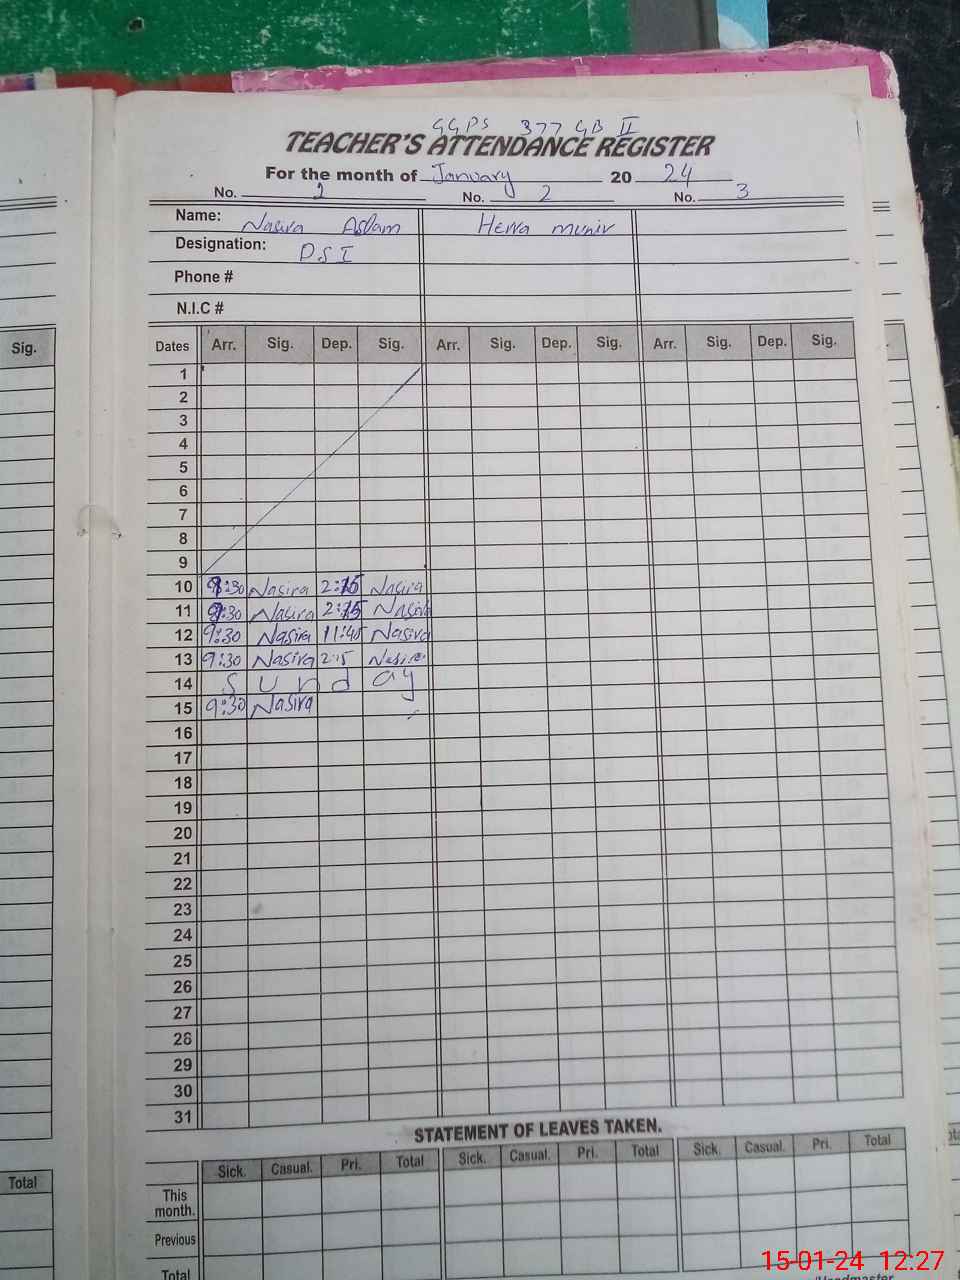 GGPS 377 GB II
TEACHER'S ATTENDANCE REGISTER
For the month of January 20 24
No. 1 No. 2 No. 3
Name: Nasira Aslam Herra munir
Designation: D.S.I
Phone #
N.I.C #
Sig.
Dates Arr. Sig. Dep. Sig. Arr. Sig. Dep. Sig. Arr. Sig. Dep. Sig.
1
2
3
4
5
6
7
8
9
10 9:30 Nasira 2:15 Nasira
11 9:30 Nasira 2:15 Nasira
12 9:30 Nasira 11:45 Nasira
13 9:30 Nasira 2:15 Nasira
14 Sunday
15 9:30 Nasira
16
17
18
19
20
21
22
23
24
25
26
27
28
29
30
31
STATEMENT OF LEAVES TAKEN.
Sick. Casual. Pri. Total Sick. Casual. Pri. Total Sick. Casual. Pri. Total
Total
This month.
Previous
Total
15-01-24 12:27